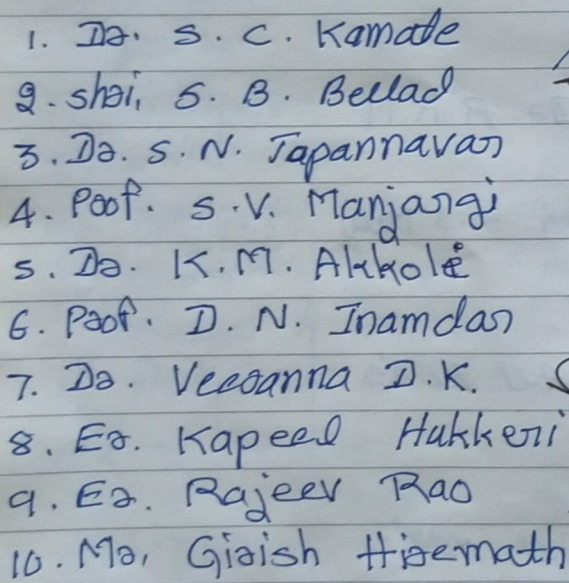 1. Dr. S. C. Kamate
2. Shri, S. B. Bellad
3. Dr. S. N. Tapannavar
4. Prof. S.V. Manjargi
5. Dr. K.M. Akkole
6. Prof. D. N. Inamdar
7. Dr. Veeranna D.K.
8. Er. Kapeel Hukkeri
9. Er. Rajeev Rao
10. Mr, Girish Hiremath